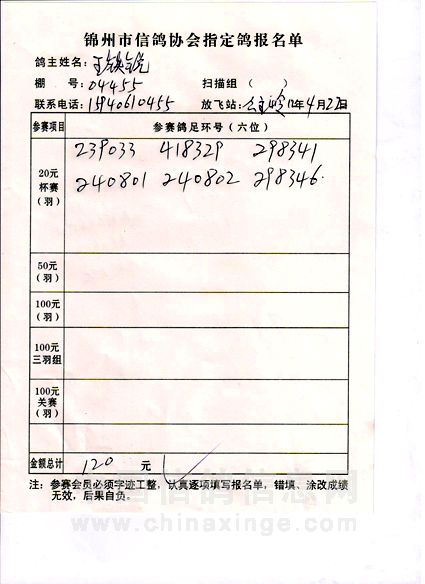 锦州市信鸽协会指定鸽报名单
鸽主姓名：王
棚 号：04455 扫描组（ ）
联系电话：15940610455 放飞站：公主岭 12年4月22日
参赛项目 参赛鸽足环号（六位）
20元
杯赛
（羽）
239033 418329 298341
240801 240802 298346
50元
（羽）
100元
（羽）
100元
三羽组
100元
关赛
（羽）
金额总计 120 元
注：参赛会员必须字迹工整，认真逐项填写报名单，错填、涂改成绩
无效，后果自负。
中国信鸽信息网
www.chinaxinge.com